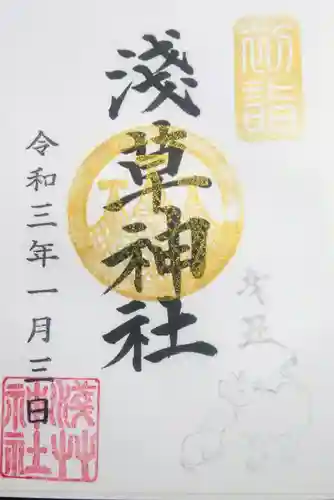 初詣
淺草神社
辛丑
令和三年一月三日
淺草神社